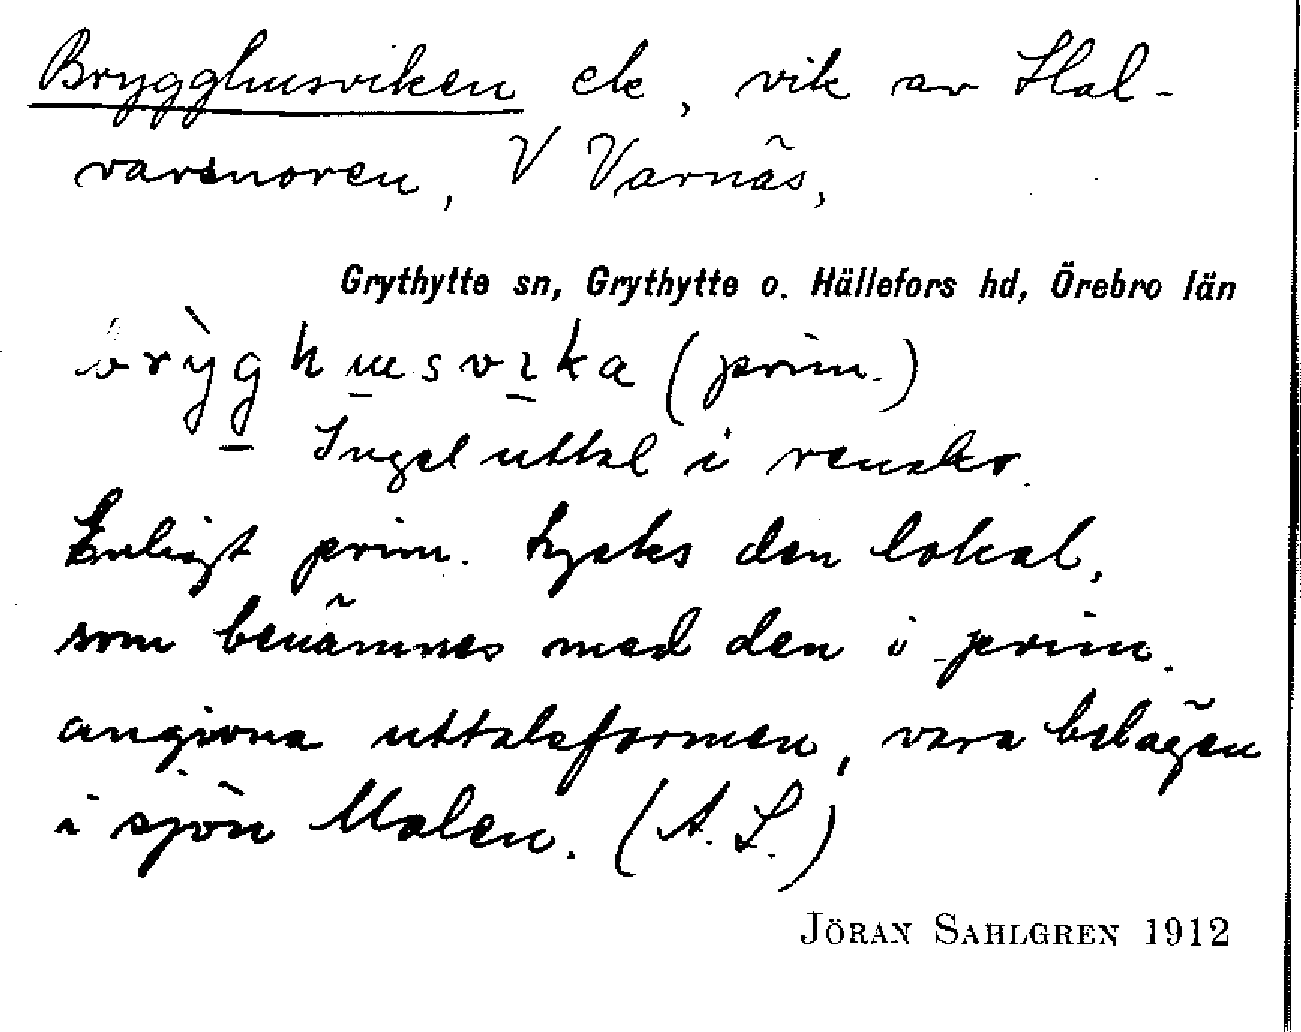 Brygghusviken ek, vik av Hal-
varsnoren, V Varnäs,
Grythytte sn, Grythytte o. Hällefors hd, Örebro län
(prim.)
Inget uttal i renskr.
Enligt prim. tycks den lokal,
som benämnes med den i prim.
angivna uttalsformen, vara belägen
i sjön Malen. (A. L.)
JÖRAN SAHLGREN 1912